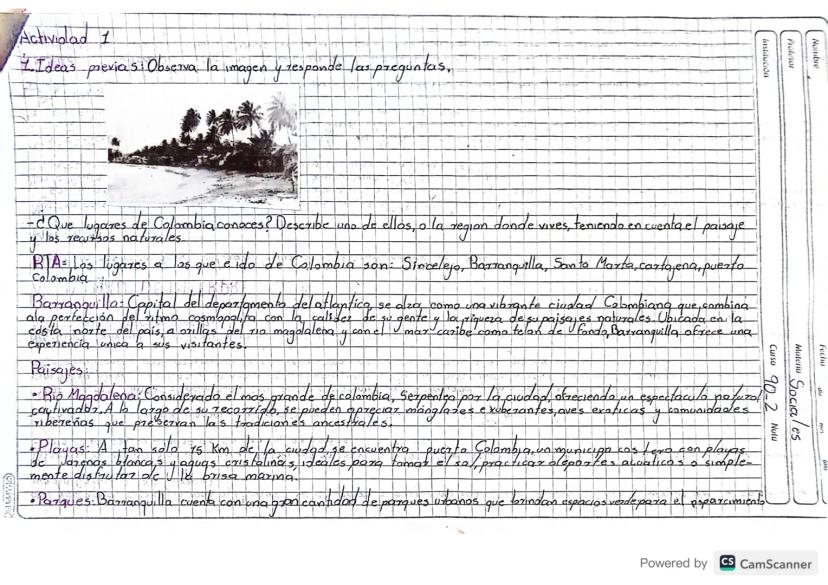 Actividad 1
1. Ideas previas: Observa la imagen y responde las preguntas.
-¿Que lugares de Colombia conoces? Describe uno de ellos, o la region donde vives, teniendo en cuenta el paisaje
y los recursos naturales.
RTA= Los lugares a los que e ido de Colombia son: Sincelejo, Barranquilla, Santa Marta, cartajena, puerto
Colombia
Barranquilla: Capital del departamento del atlantico, se alza como una vibrante ciudad Colombiana que combina
a la perfección del ritmo cosmopolita con la calidez de su gente y la riqueza de su paisajes naturales. Ubicada en la
costa norte del pais, a orillas del rio magdalena y con el mar caribe como telon de fondo, Barranquilla ofrece una
experiencia unica a sus visitantes.
Paisajes:
• Rio Magdalena: Considerado el mas grande de colombia, Serpentea por la ciudad, ofreciendo un espectaculo natural
cautivador. A lo largo de su recorrido, se pueden apreciar manglares exuberantes, aves exoticas y comunidades
ribereñas que preservan las tradiciones ancestrales.
• Playas: A tan solo 15 Km de la ciudad se encuentra puerto Colombia, un municipo costero con playas
de arenas blancas y aguas cristalinas, ideales para tomar el sol, practicar deportes acuaticos o simple-
mente disfrutar de la brisa marina.
• Parques: Barranquilla cuenta con una gran cantidad de parques urbanos que brindan espacios verde para el esparcimiento
Nombre
Profesor
Institución
Fecha
Materia Sociales
Curso 90-2 Nota
Powered by CS CamScanner